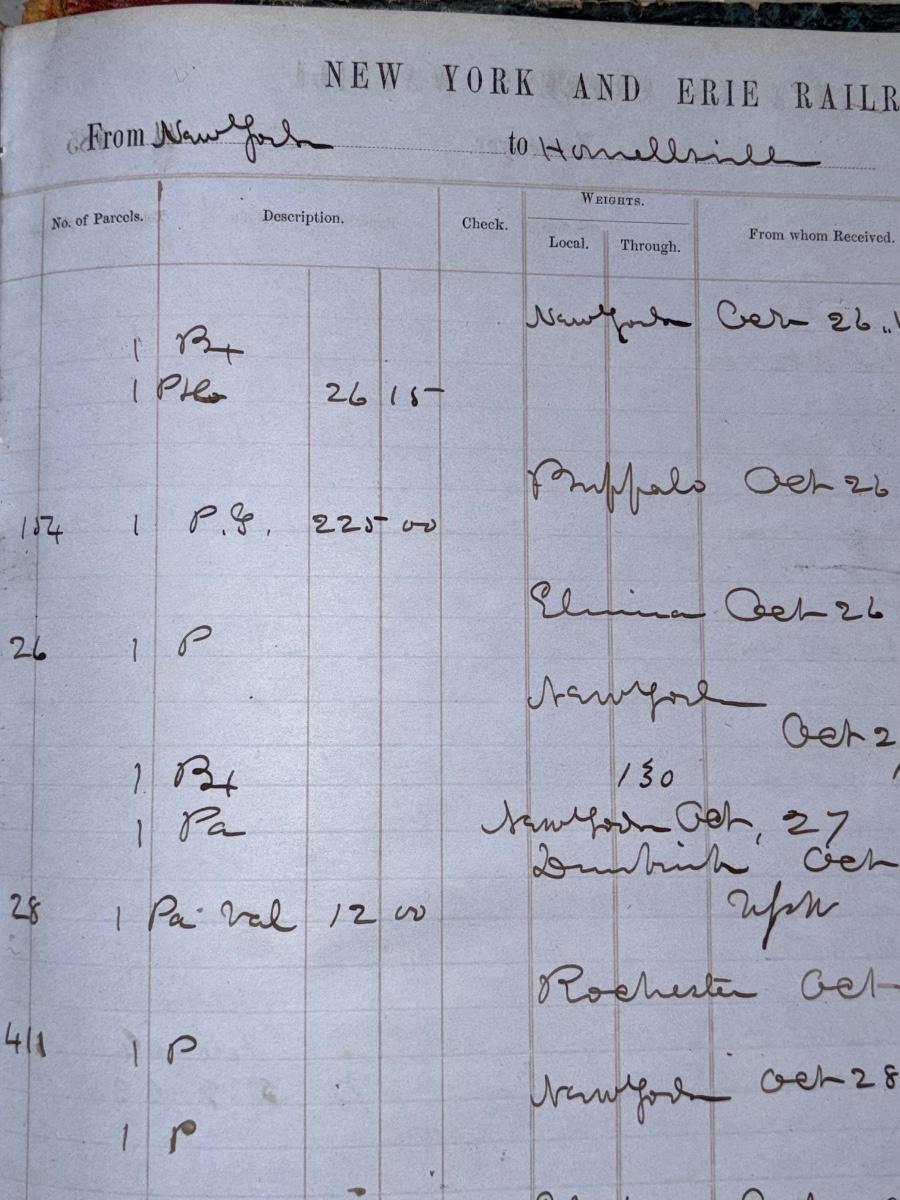 NEW YORK AND ERIE RAILR
From New York to Hornellsville
No. of Parcels. Description. Check. WEIGHTS. From whom Received.
Local. Through.
New York Oct 26
1 Bx
1 26 15
Buffalo Oct 26
154 1 P.G. 225 00
Elmira Oct 26
26 1 P
New York
Oct 2
1 Bx 130
1 Pa New York Oct, 27
Dunkirk Oct
28 1 Pa Val 12 00
Rochester Oct
411 1 P
New York Oct 28
1 P